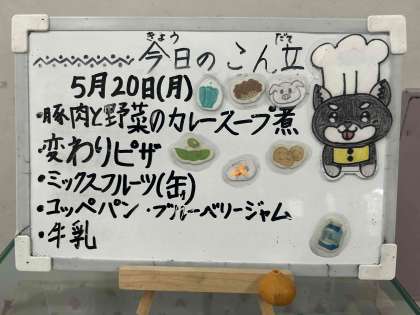 きょう だて
今日のこん立
5月20日(月)
・豚肉と野菜のカレースープ煮
変わりピザ
・ミックスフルーツ(缶)
・コッペパン・ブルーベリージャム
・牛乳